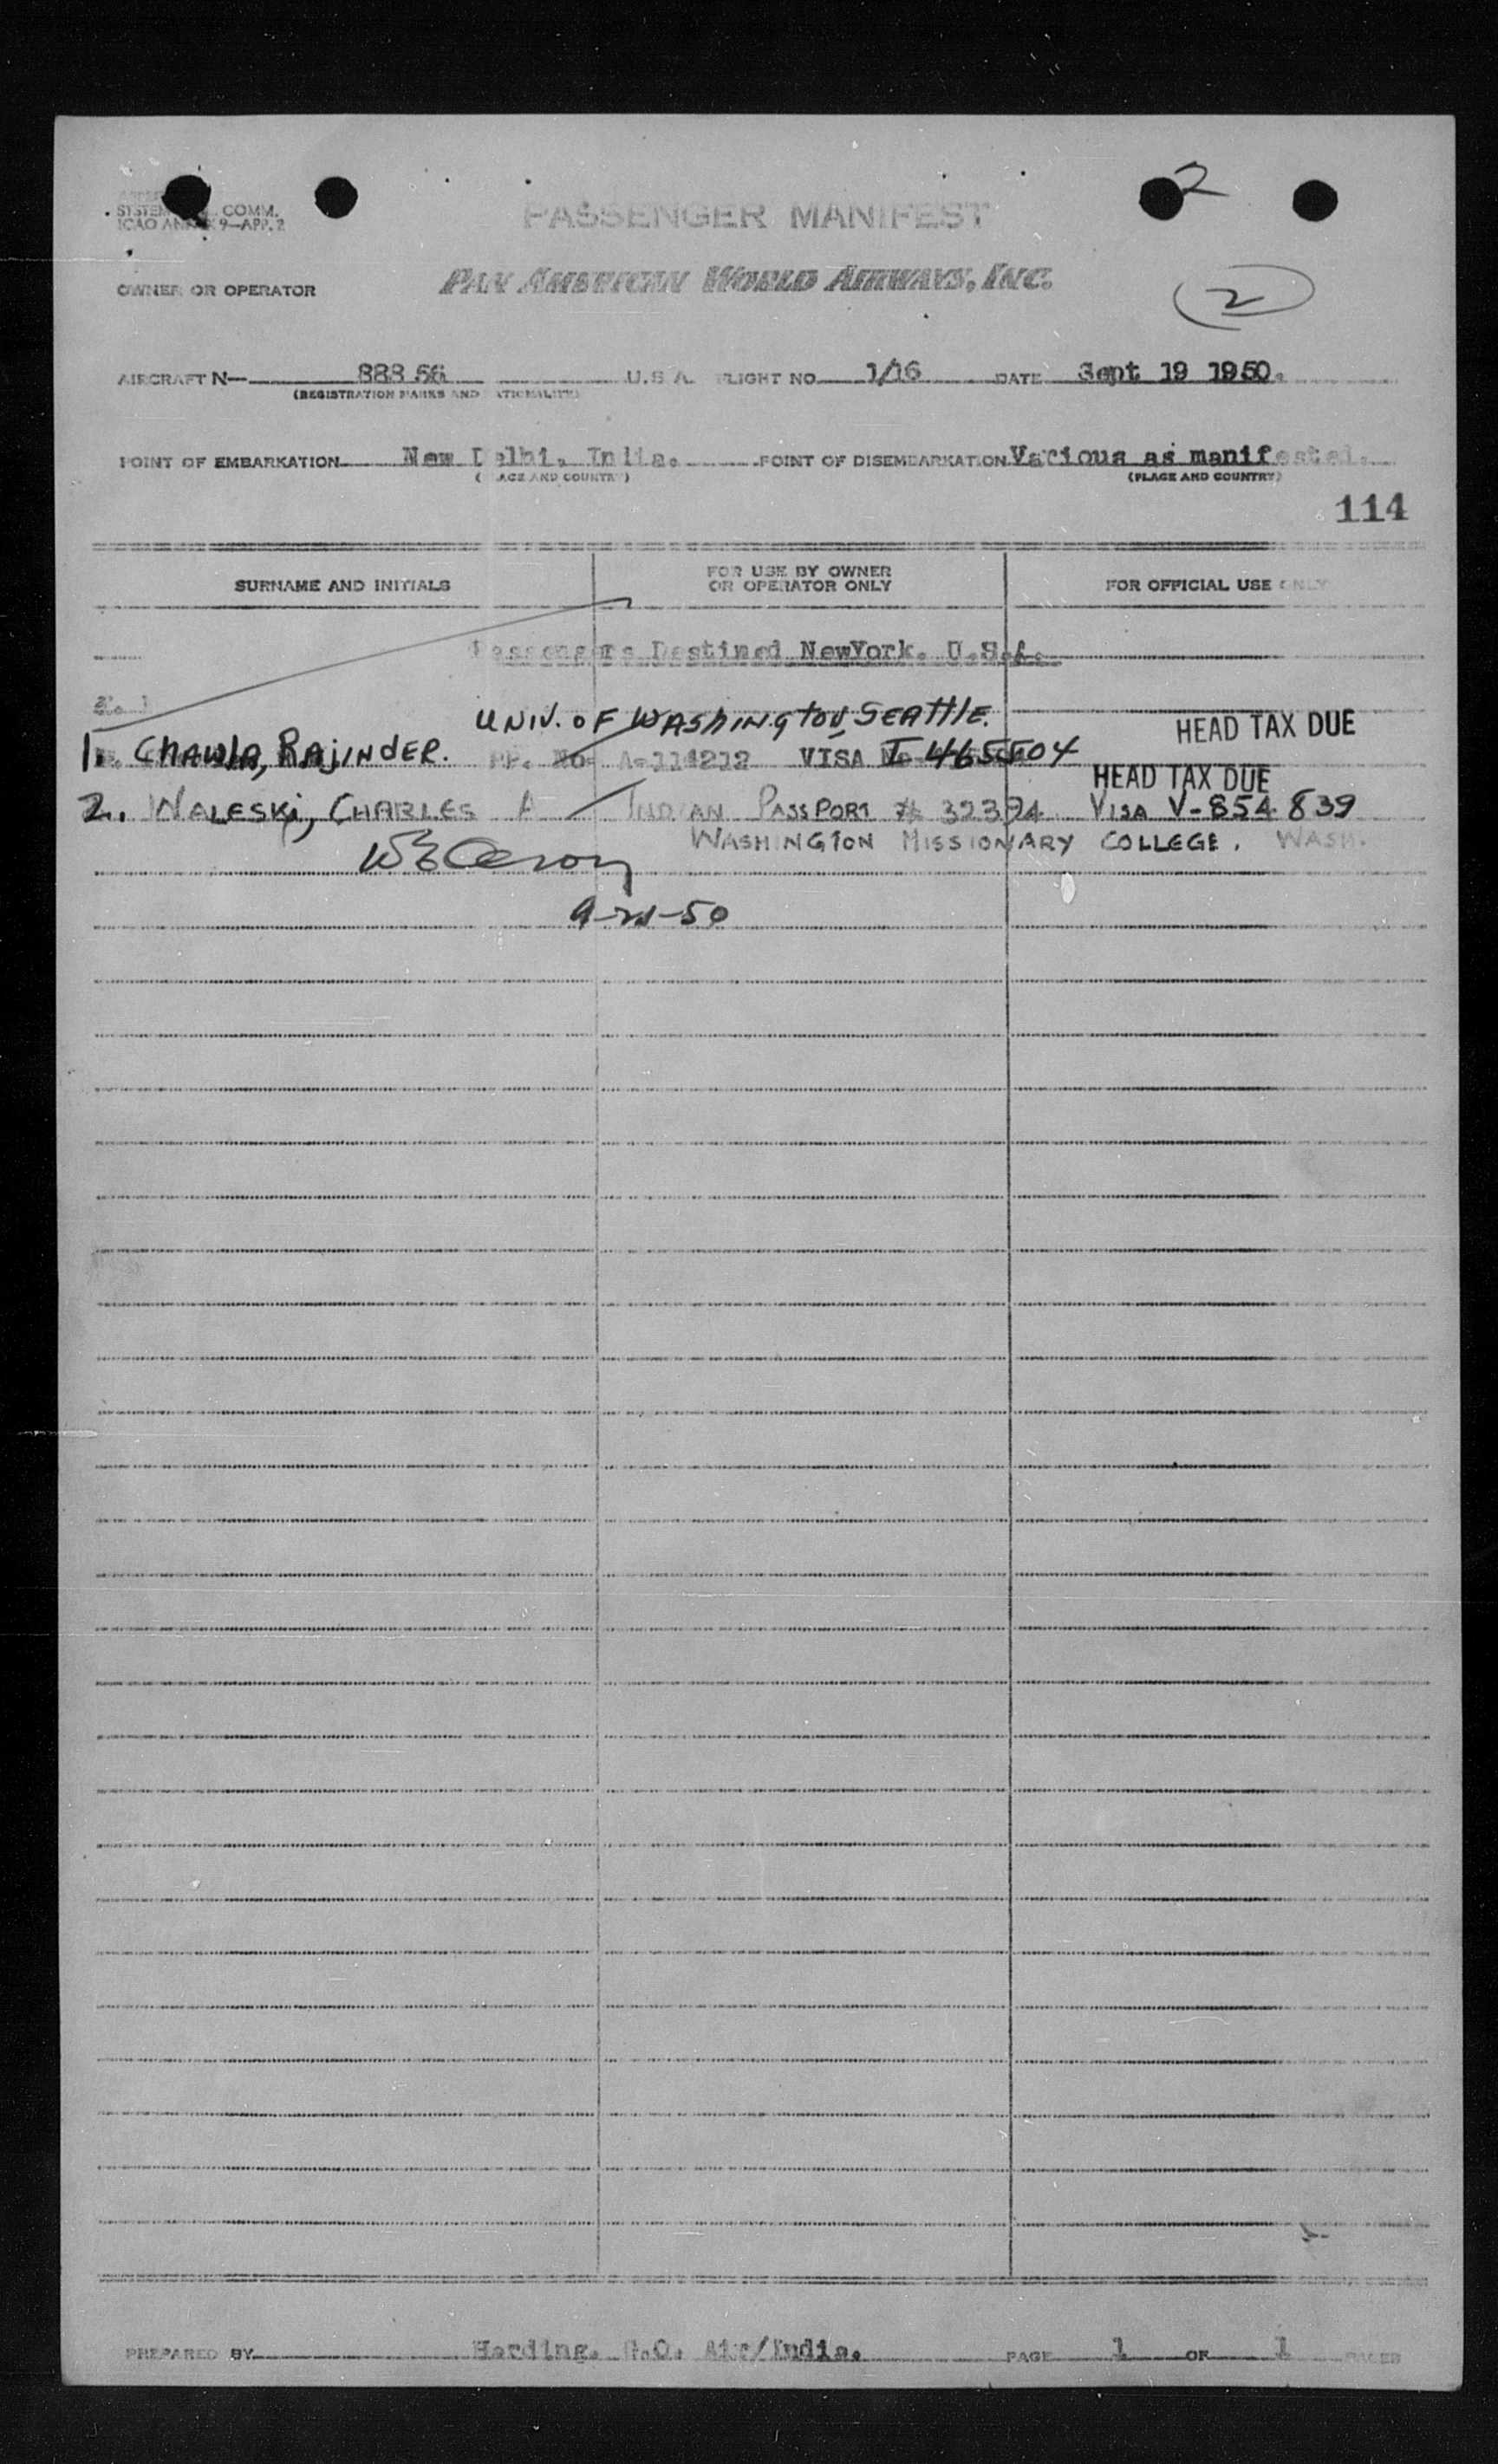 2
SYSTEM COMM.
ICAO ANNEX 9—APP. 2
PASSENGER MANIFEST
OWNER OR OPERATOR PAN AMERICAN WORLD AIRWAYS, INC.
2
AIRCRAFT N— 888 56 U.S.A. FLIGHT NO. 1/16 DATE Sept 19 1950.
(REGISTRATION MARKS AND NATIONALITY)
POINT OF EMBARKATION New Delhi. India. POINT OF DISEMBARKATION Various as manifested.
(PLACE AND COUNTRY) (PLACE AND COUNTRY)
114
SURNAME AND INITIALS FOR USE BY OWNER OR OPERATOR ONLY FOR OFFICIAL USE ONLY
Passengers Destined NewYork. U.S.A.
UNIV. OF WASHINGTON, SEATTLE. HEAD TAX DUE
1. CHAWLA, RAJINDER. PP. No. A-114212 VISA No. V 465504
HEAD TAX DUE
2. WALESKI, CHARLES A INDIAN PASSPORT # 32394 VISA V-854839
WASHINGTON MISSIONARY COLLEGE. WASH.
9-21-50
PREPARED BY Harding. Air/India. PAGE 1 OF 1 PAGES